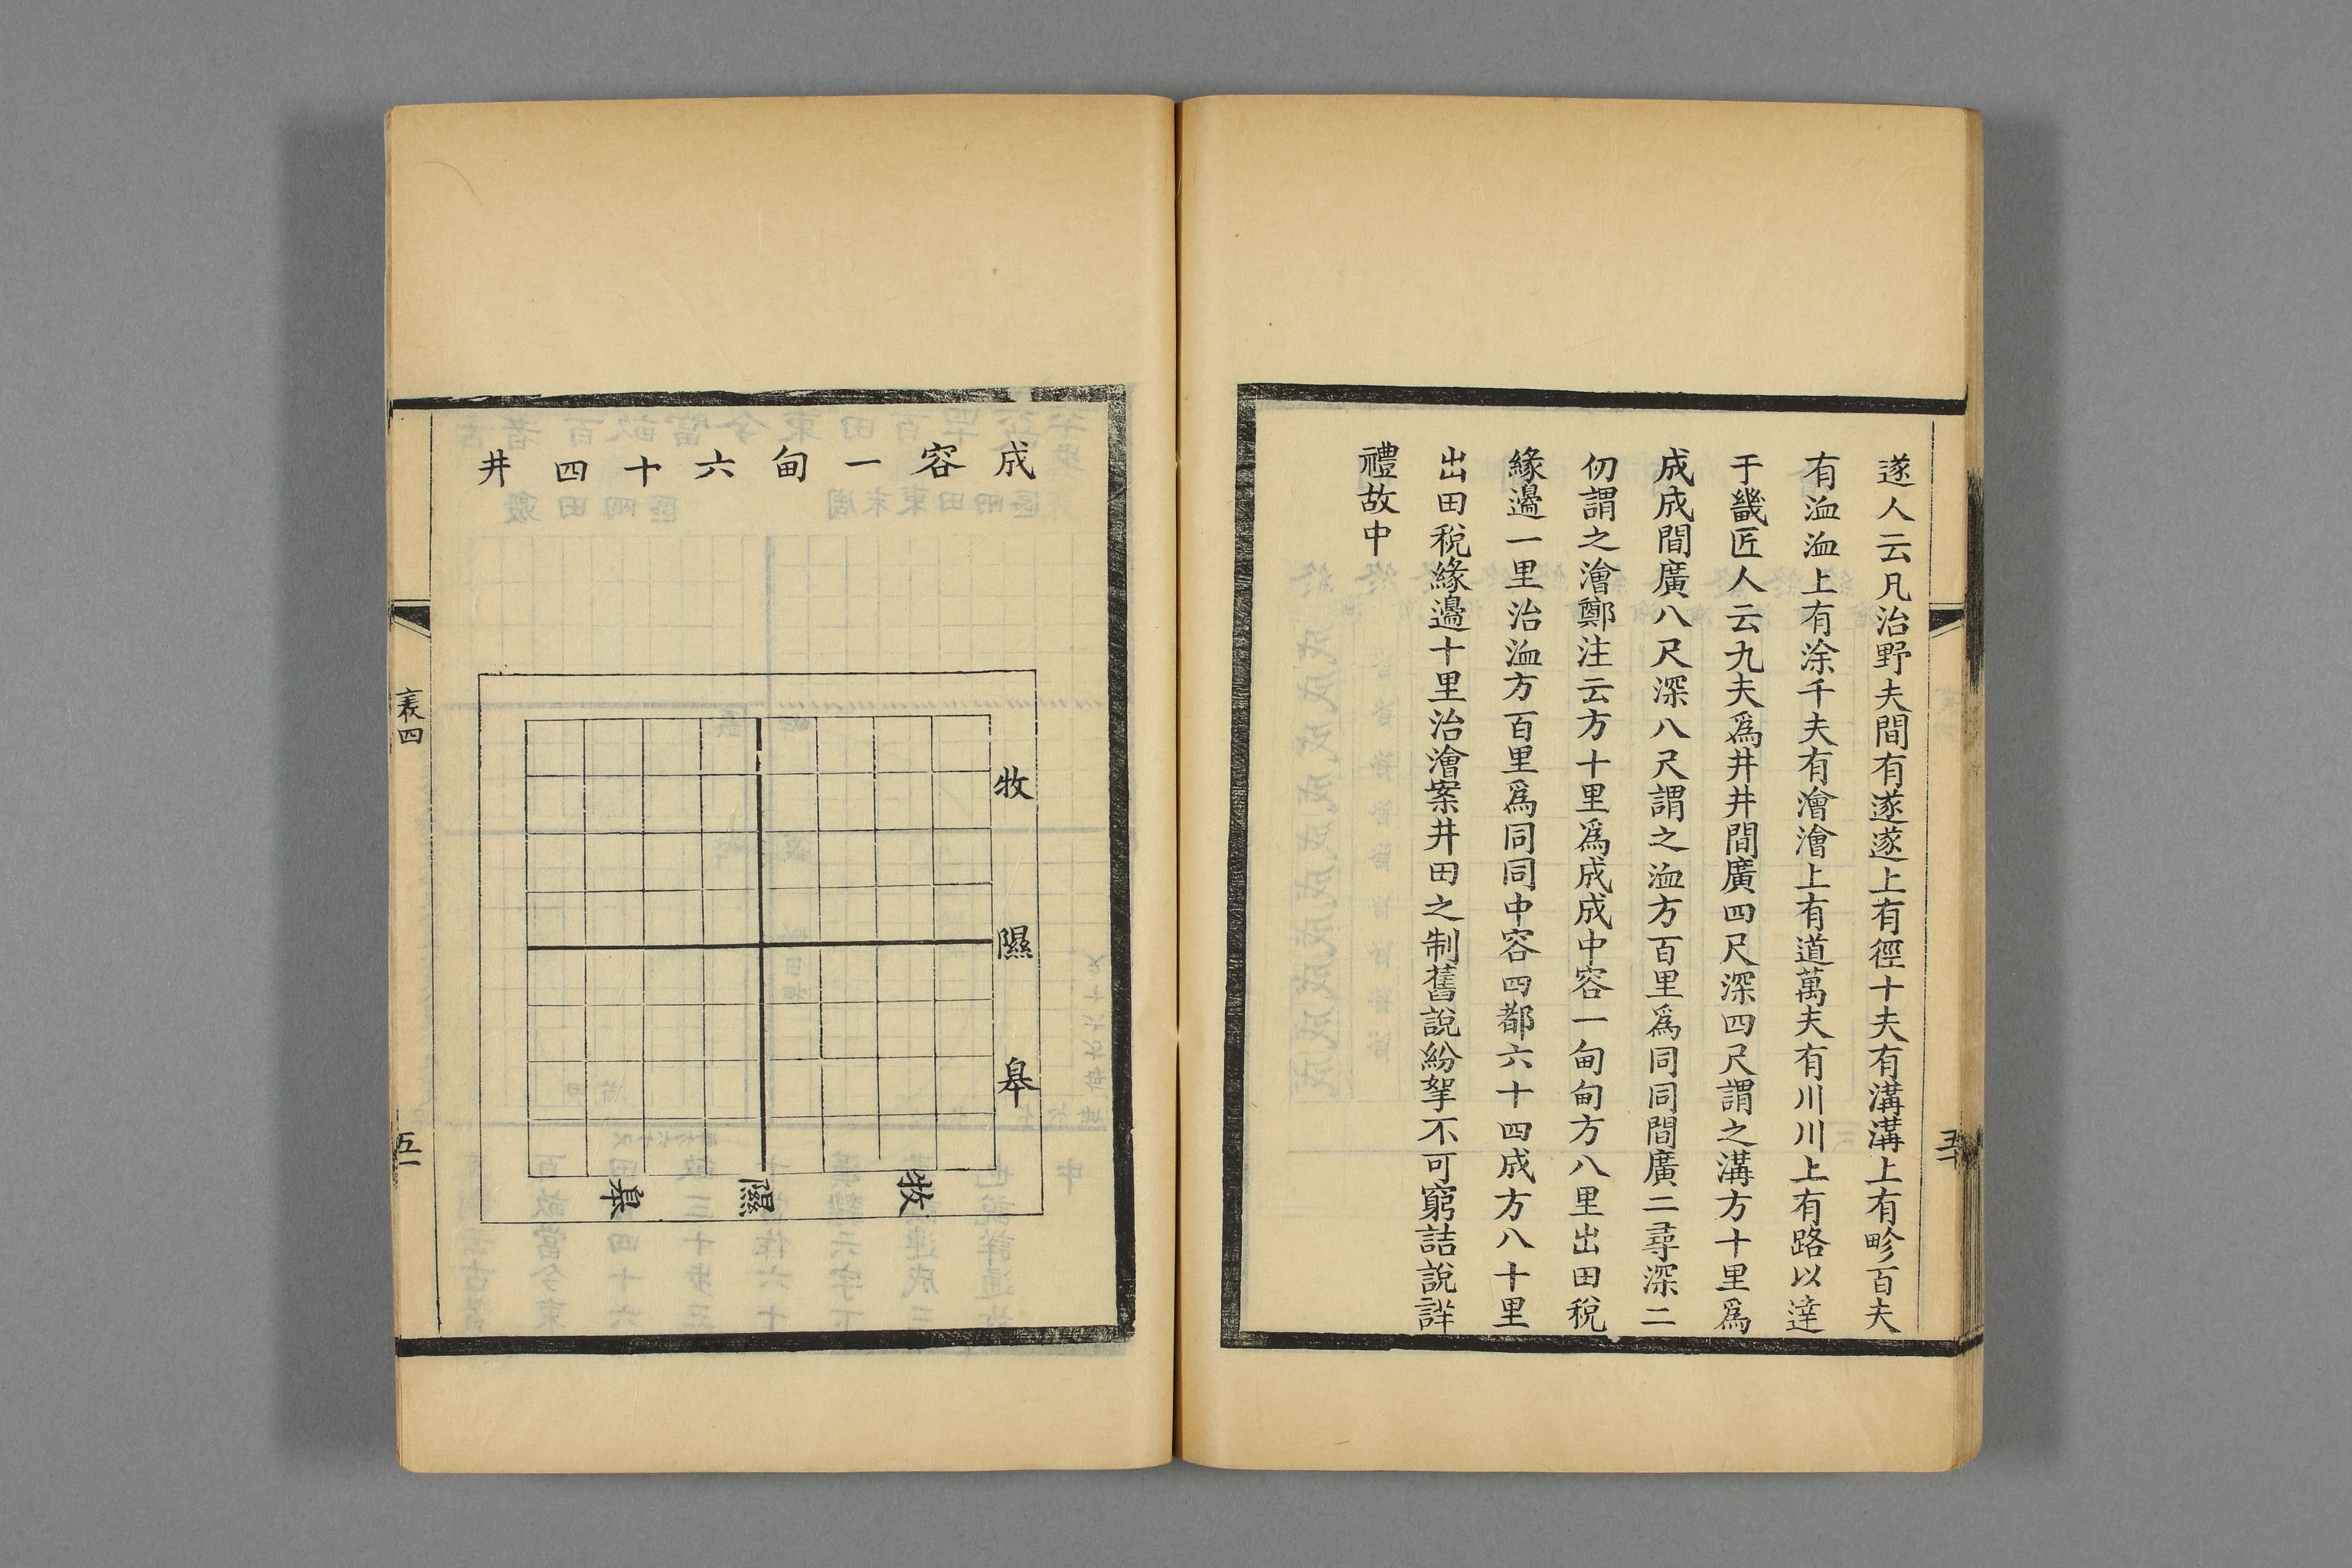 遂人云凡治野夫間有遂遂上有徑十夫有溝溝上有畛百夫
有洫洫上有涂千夫有澮澮上有道萬夫有川川上有路以達
于畿匠人云九夫爲井井間廣四尺深四尺謂之溝方十里爲
成成間廣八尺深八尺謂之洫方百里爲同同間廣二尋深二
仞謂之澮鄭注云方十里爲成成中容一甸甸方八里出田稅
緣邊一里治洫方百里爲同同中容四都六十四成方八十里
出田稅緣邊十里治澮案井田之制舊說紛挐不可窮詰說詳
禮故中
成容一甸六十四井
牧
隰
皋
牧
隰
皋
表四
五一